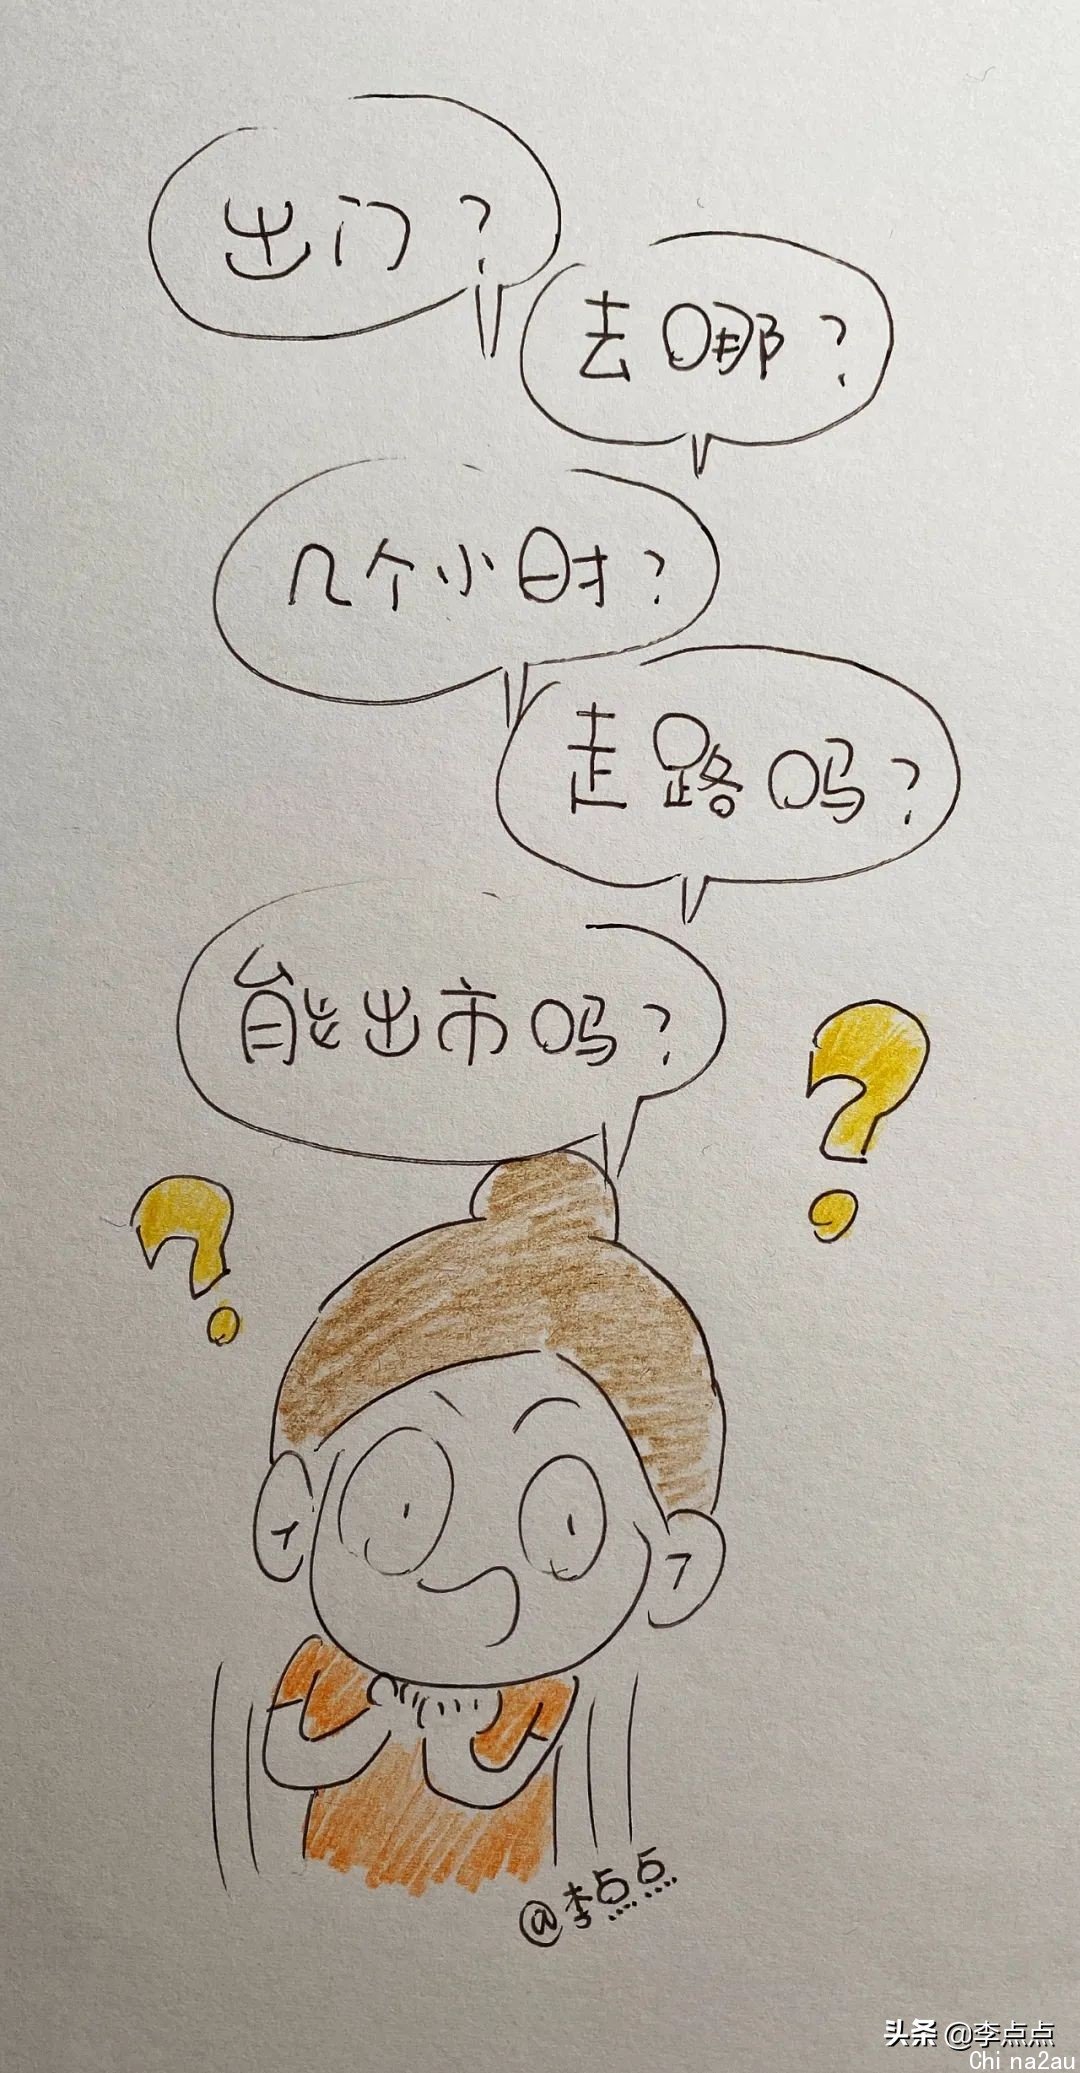 出门？
去哪？
几个小时？
走路吗？
能出市吗？
@李点点
头条 @李点点
Chi na2au